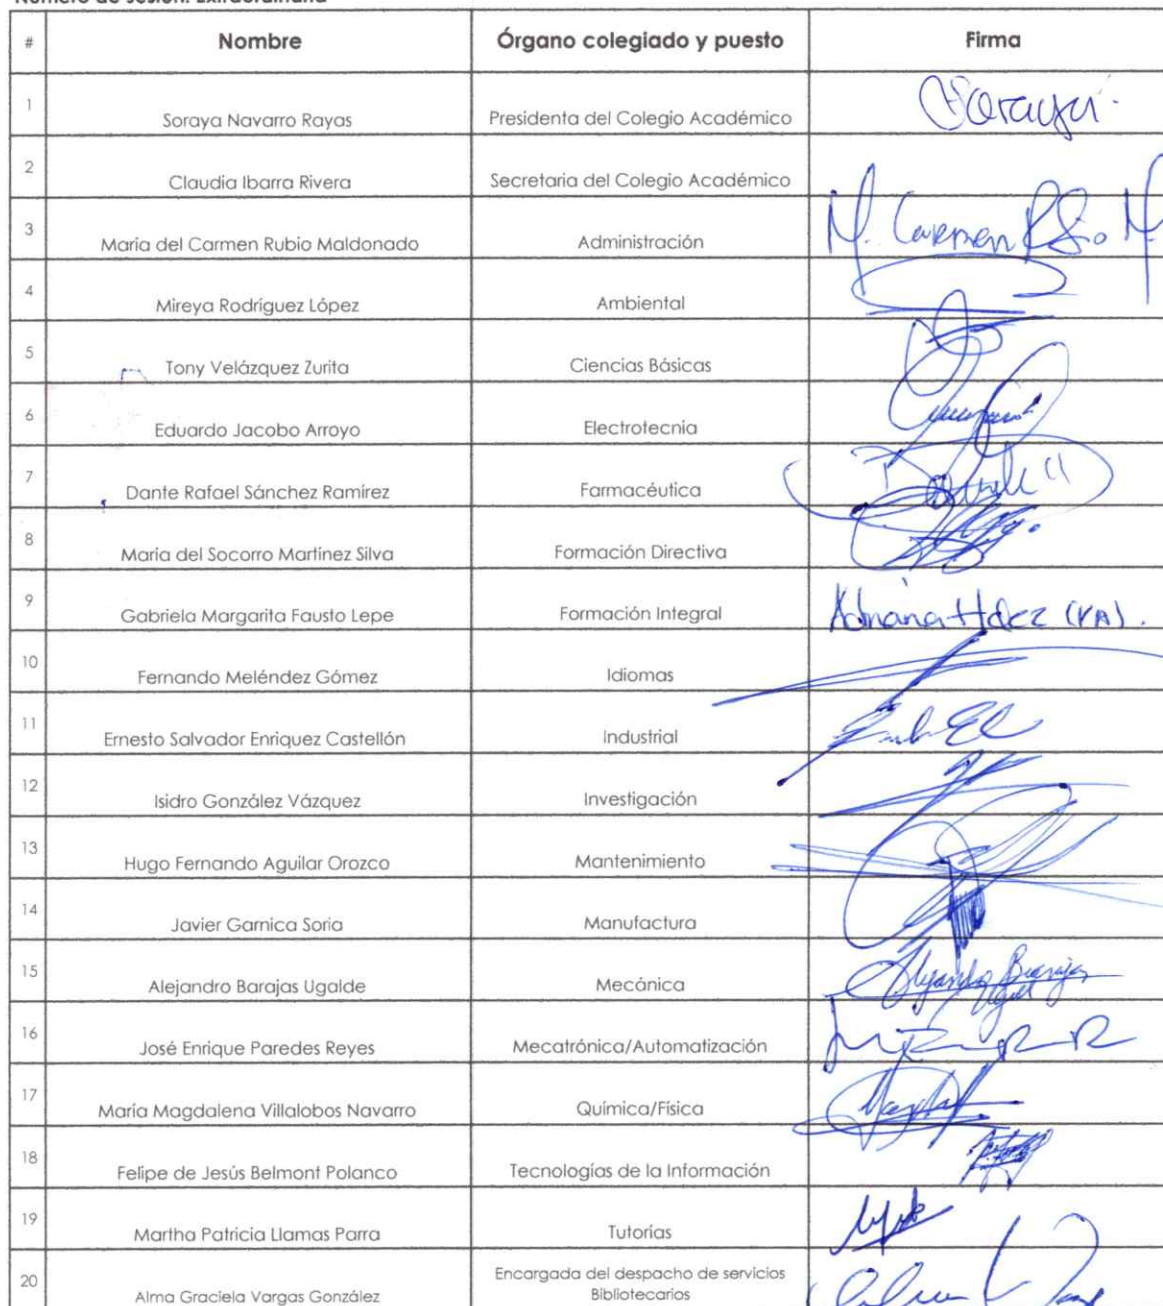 Número de sesión: Extraordinaria
# Nombre Órgano colegiado y puesto Firma
1 Soraya Navarro Rayas Presidenta del Colegio Académico Soraya
2 Claudia Ibarra Rivera Secretaria del Colegio Académico
3 María del Carmen Rubio Maldonado Administración M. Carmen Rubio M
4 Mireya Rodríguez López Ambiental
5 Tony Velázquez Zurita Ciencias Básicas
6 Eduardo Jacobo Arroyo Electrotecnia
7 Dante Rafael Sánchez Ramírez Farmacéutica
8 María del Socorro Martínez Silva Formación Directiva
9 Gabriela Margarita Fausto Lepe Formación Integral Adriana Hdez (VA).
10 Fernando Meléndez Gómez Idiomas
11 Ernesto Salvador Enriquez Castellón Industrial
12 Isidro González Vázquez Investigación
13 Hugo Fernando Aguilar Orozco Mantenimiento
14 Javier Garnica Soria Manufactura
15 Alejandro Barajas Ugalde Mecánica Alejandro Barajas
16 José Enrique Paredes Reyes Mecatrónica/Automatización
17 María Magdalena Villalobos Navarro Química/Física
18 Felipe de Jesús Belmont Polanco Tecnologías de la Información
19 Martha Patricia Llamas Parra Tutorías
20 Alma Graciela Vargas González Encargada del despacho de servicios
Bibliotecarios